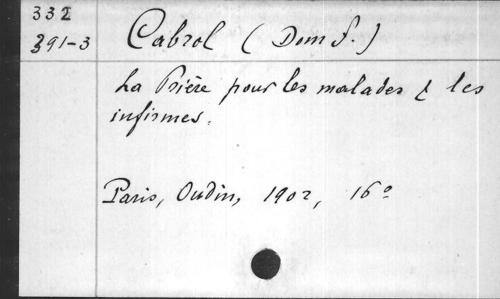 332
391-3
Cabrol (Dom F.)
La Prière pour les malades & les
infirmes.
Paris, Oudin, 1902, 16º